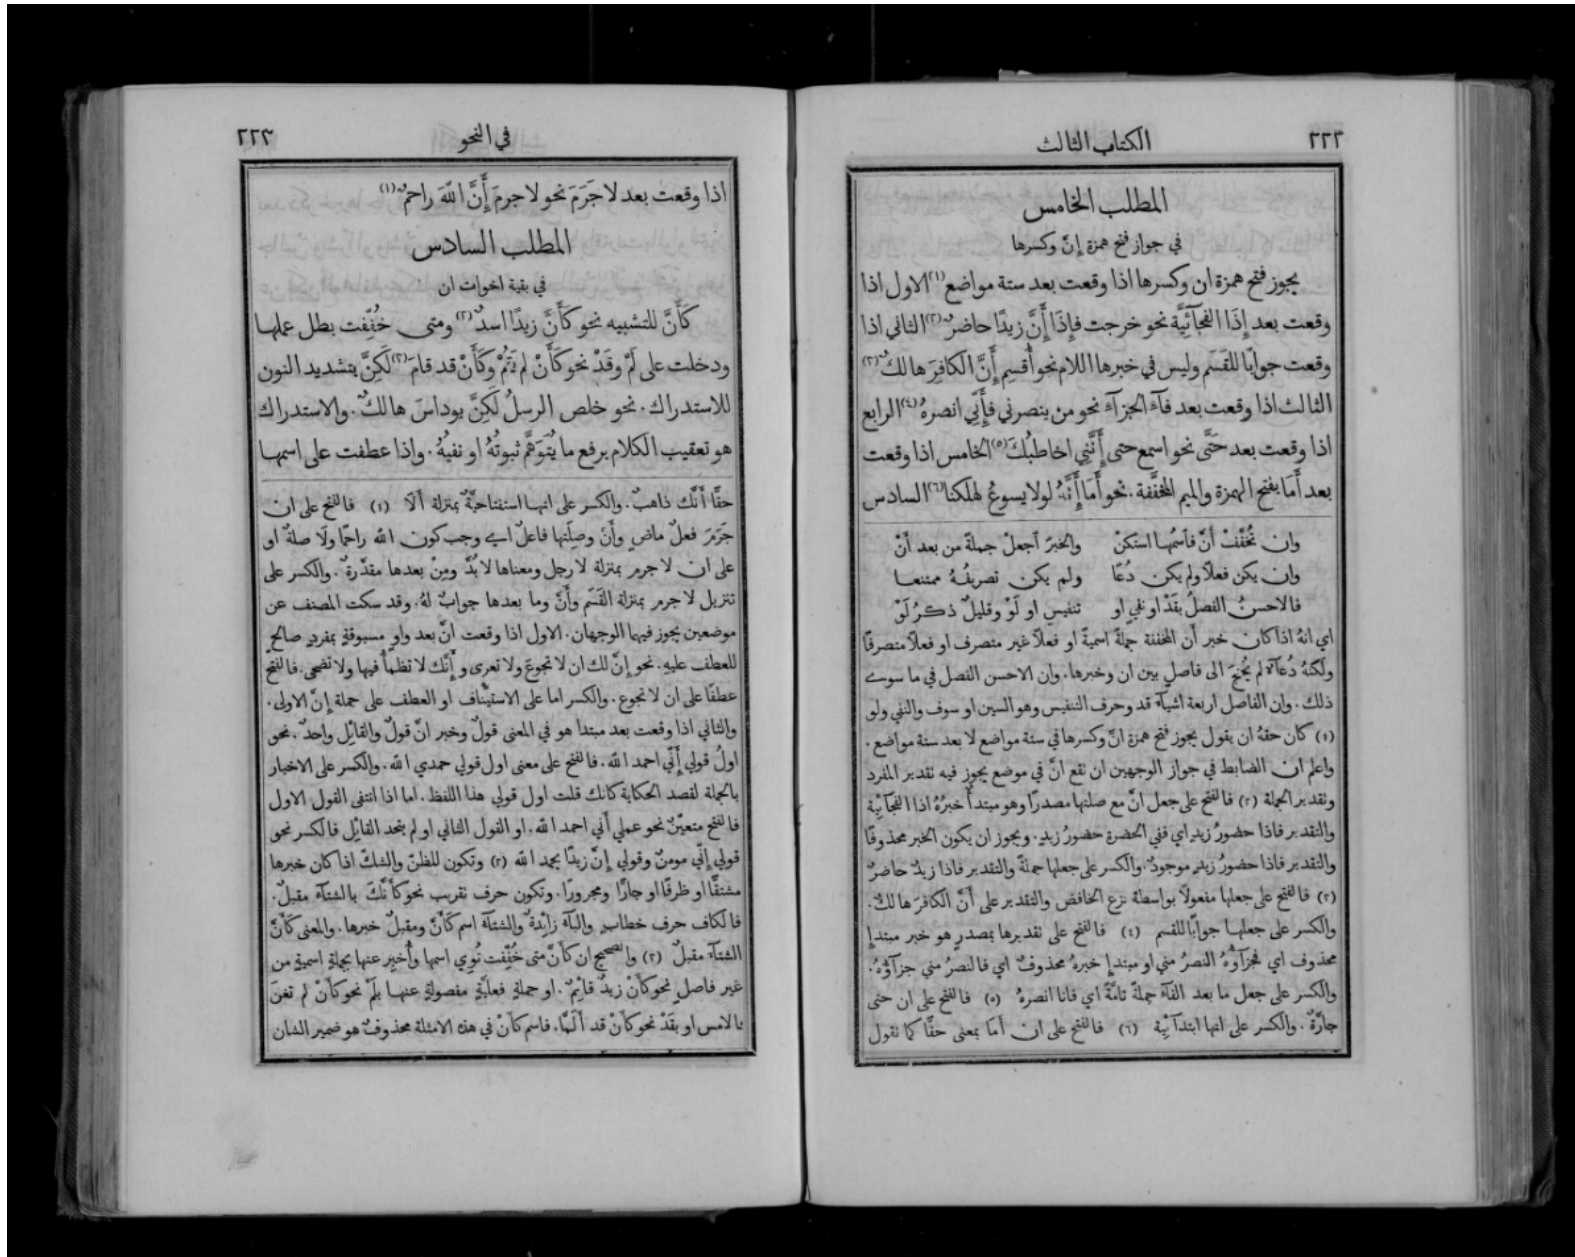 ٢٢٢
الكتاب الثالث
المطلب الخامس
في جواز فتح همزة إنّ وكسرها
يجوز فتح همزة ان وكسرها اذا وقعت بعد ستة مواضع (١) الاول اذا
وقعت بعد إِذَا الفجآئيَّة نحو خرجت فإِذَا إِنَّ زيدًا حاضرٌ (٢) الثاني اذا
وقعت جوابًا للقَسَم وليس في خبرها اللام نحو أُقسِم إِنَّ الكافِرَ هالكٌ (٣)
الثالث اذا وقعت بعد فآء الجزآء نحو من ينصرني فإِنّي انصرهُ (٤) الرابع
اذا وقعت بعد حَتَّى نحو اسمع حتى إِنَّني اخاطبُكَ (٥) الخامس اذا وقعت
بعد أَمَا بفتح الهمزة والميم المخفَّفة. نحو أَمَا إِنَّهُ لولا يسوعُ لهلكنا (٦) السادس
وان تُخَفَّفْ أنَّ فاَسمُها استكنْ والخبرَ اَجعلْ جملةً من بعد أنْ
وان يكن فعلًا ولم يكن دُعَا ولم يكن تصريفُهُ ممتنعا
فالاحسنُ الفصلُ بقَدْ او نفيٍ او تنفيسٍ او لَوْ وقليلٌ ذكرُ لَوْ
اي انهُ اذا كان خبر أن المخففة جملةً اسميةً او فعلًا غير متصرف او فعلًا متصرفًا
ولكنهُ دُعآءٌ لم يُحتَج الى فاصلٍ بين ان وخبرها. وان الاحسن الفصل في ما سوى
ذلك. وان الفاصل اربعة اشيآء قد وحرف التنفيس وهو السين او سوف والنفي ولو
(١) كان حقهُ ان يقول يجوز فتح همزة انّ وكسرها في ستة مواضع لا بعد ستة مواضع.
واعلم ان الضابط في جواز الوجهين ان تقع انّ في موضع يجوز فيه تقدير المفرد
وتقدير الجملة (٢) فالفتح على جعل انّ مع صلتها مصدرًا وهو مبتدأٌ خبرُهُ اذا الفجآئيَّة
والتقدير فاذا حضورُ زيدٍ اي ففي الحضرة حضورُ زيدٍ. ويجوز ان يكون الخبر محذوفًا
والتقدير فاذا حضورُ زيدٍ موجودٌ. والكسر على جعلها جملةً والتقدير فاذا زيدٌ حاضرٌ
(٣) فالفتح على جعلها مفعولًا بواسطة نزع الخافض والتقدير على أَنَّ الكافرَ هالكٌ.
والكسر على جعلها جوابًا للقسم (٤) فالفتح على تقديرها بمصدرٍ هو خبر مبتدإٍ
محذوف اي فجزآؤُهُ النصرُ مني او مبتدإٍ خبرهُ محذوفٌ اي فالنصرُ مني جزآؤُهُ.
والكسر على جعل ما بعد الفآء جملةً تامَّةً اي فانا انصرهُ (٥) فالفتح على ان حتى
جارَّةٌ. والكسر على انها ابتدآئيَّة (٦) فالفتح على ان أمَا بمعنى حقًّا كما تقول
في النحو
٢٢٣
اذا وقعت بعد لا جَرَمَ نحو لا جرمَ أَنَّ اللّٰهَ راحمٌ (١)
المطلب السادس
في بقية اخوات ان
كَأَنَّ للتشبيه نحو كَأَنَّ زيدًا اسدٌ (٢) ومتى خُفِّفت بطل عملها
ودخلت على لَمْ وقَدْ نحو كَأَنْ لم يَقُمْ وكَأَنْ قد قامَ (٣) لَكِنَّ بتشديد النون
للاستدراك. نحو خلص الرسلُ لكِنَّ يوداسَ هالكٌ. والاستدراك
هو تعقيب الكلام برفع ما يُتَوَهَّمُ ثبوتُهُ او نفيُهُ. واذا عطفت على اسمها
حقًّا أَنَّك ذاهبٌ. والكسر على انها استفتاحيَّةٌ بمنزلة ألَا (١) فالفتح على ان
جَرَمَ فعلٌ ماضٍ وأَنَّ وصِلَتها فاعلٌ اي وجب كون اللّٰه راحمًا ولَا صلةٌ او
على ان لا جرم بمنزلة لا رجل ومعناها لا بُدَّ ومِنْ بعدها مقدَّرةٌ. والكسر على
تنزيل لا جرم بمنزلة القَسَم وأَنَّ وما بعدها جوابٌ لهُ. وقد سكت المصنف عن
موضعين يجوز فيهما الوجهان. الاول اذا وقعت انَّ بعد واو مسبوقةٍ بمفردٍ صالحٍ
للعطف عليهِ. نحو إِنَّ لك ان لا تجوعَ ولا تعرى وإِنَّك لا تظمأُ فيها ولا تضحى. فالفتح
عطفًا على ان لا تجوع. والكسر اما على الاستيناف او العطف على جملة إِنّ الاولى.
والثاني اذا وقعت بعد مبتدا هو في المعنى قولٌ وخبر انّ قولٌ والقائل واحدٌ. نحو
اولُ قولي إِنّي احمد اللّٰه. فالفتح على معنى اول قولي حمدي اللّٰه. والكسر على الاخبار
بالجملة لقصد الحكاية كانك قلت اول قولي هذا اللفظ. اما اذا انتفى القول الاول
فالفتح متعيّنٌ نحو عملي أني احمد اللّٰه. او القول الثاني او لم يتحد القائل فالكسر نحو
قولي إِنّي مومنٌ وقولي إِنّ زيدًا يحمد اللّٰه (٢) وتكون للظنّ والشكّ اذا كان خبرها
مشتقًّا او ظرفًا او جارًا ومجرورًا. وتكون حرف تقريب نحو كأَنَّكَ بالشتآء مقبلٌ.
فالكاف حرف خطابٍ والبآء زايدةٌ والشتآء اسم كأَنَّ ومقبلٌ خبرها. والمعنى كأَنَّ
الشتآء مقبلٌ (٣) والصحيح ان كأَنَّ متى خُفِّفت نُوِي اسمها وأُخبِر عنها بجملةٍ اسميةٍ من
غير فاصلٍ نحو كأَنْ زيدٌ قائمٌ. او جملةٍ فعليَّةٍ مفصولةٍ عنها بلَمْ نحو كأَنْ لم تغنَ
بالامس او بقَدْ نحو كأَنْ قد أَلَمَّا. فاسم كأَنْ في هذه الامثلة محذوفٌ هو ضمير الشان